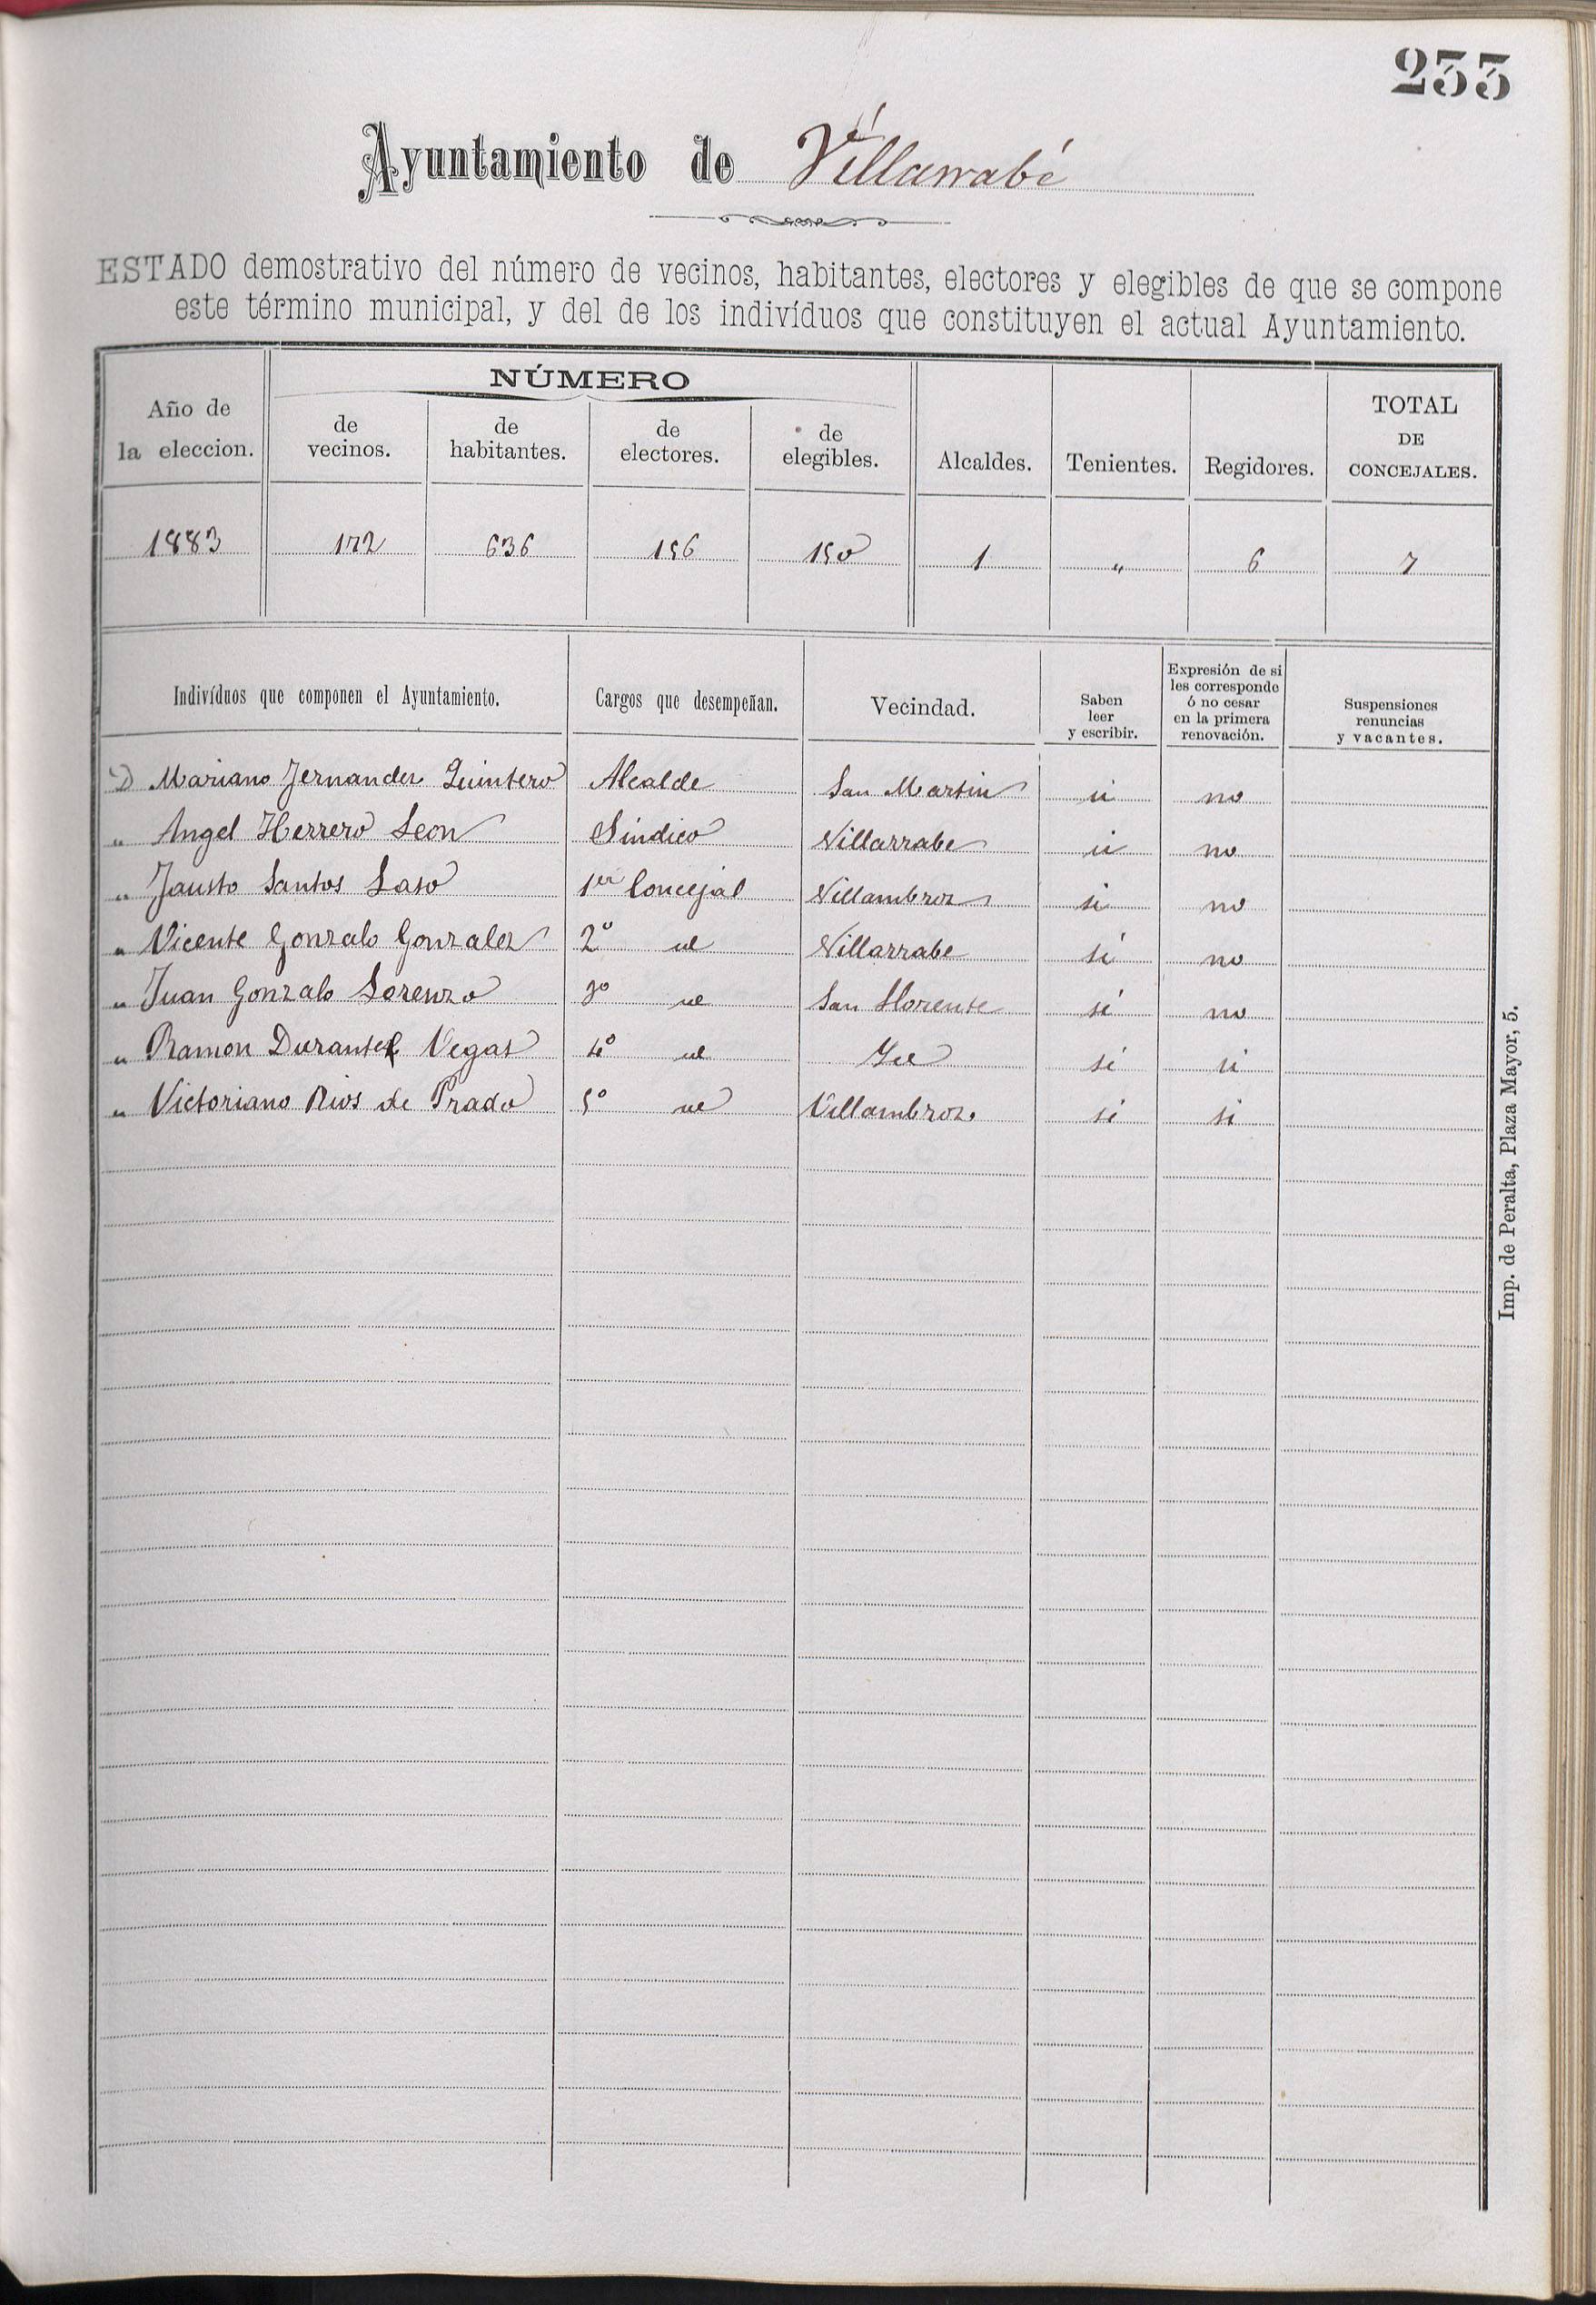 233
Ayuntamiento de Villarrabé
ESTADO demostrativo del número de vecinos, habitantes, electores y elegibles de que se compone
este término municipal, y del de los indivíduos que constituyen el actual Ayuntamiento.
Año de la eleccion. NÚMERO de vecinos. de habitantes. de electores. de elegibles. Alcaldes. Tenientes. Regidores. TOTAL DE CONCEJALES.
1883 172 636 156 150 1 " 6 7
Indivíduos que componen el Ayuntamiento. Cargos que desempeñan. Vecindad. Saben leer y escribir. Expresión de si les corresponde ó no cesar en la primera renovación. Suspensiones renuncias y vacantes.
D Mariano Fernandez Quintero Alcalde San Martin si no
" Angel Herrero Leon Sindico Villarrabe si no
" Fausto Santos Laso 1er Concejal Villambroz si no
" Vicente Gonzalo Gonzalez 2º id Villarrabe sí no
" Juan Gonzalo Lorenzo 3º id San Llorente sí no
" Ramon Durantez Vegas 4º id Id sí si
" Victoriano Rios de Prado 5º id Villambroz. sí si
Imp. de Peralta, Plaza Mayor, 5.